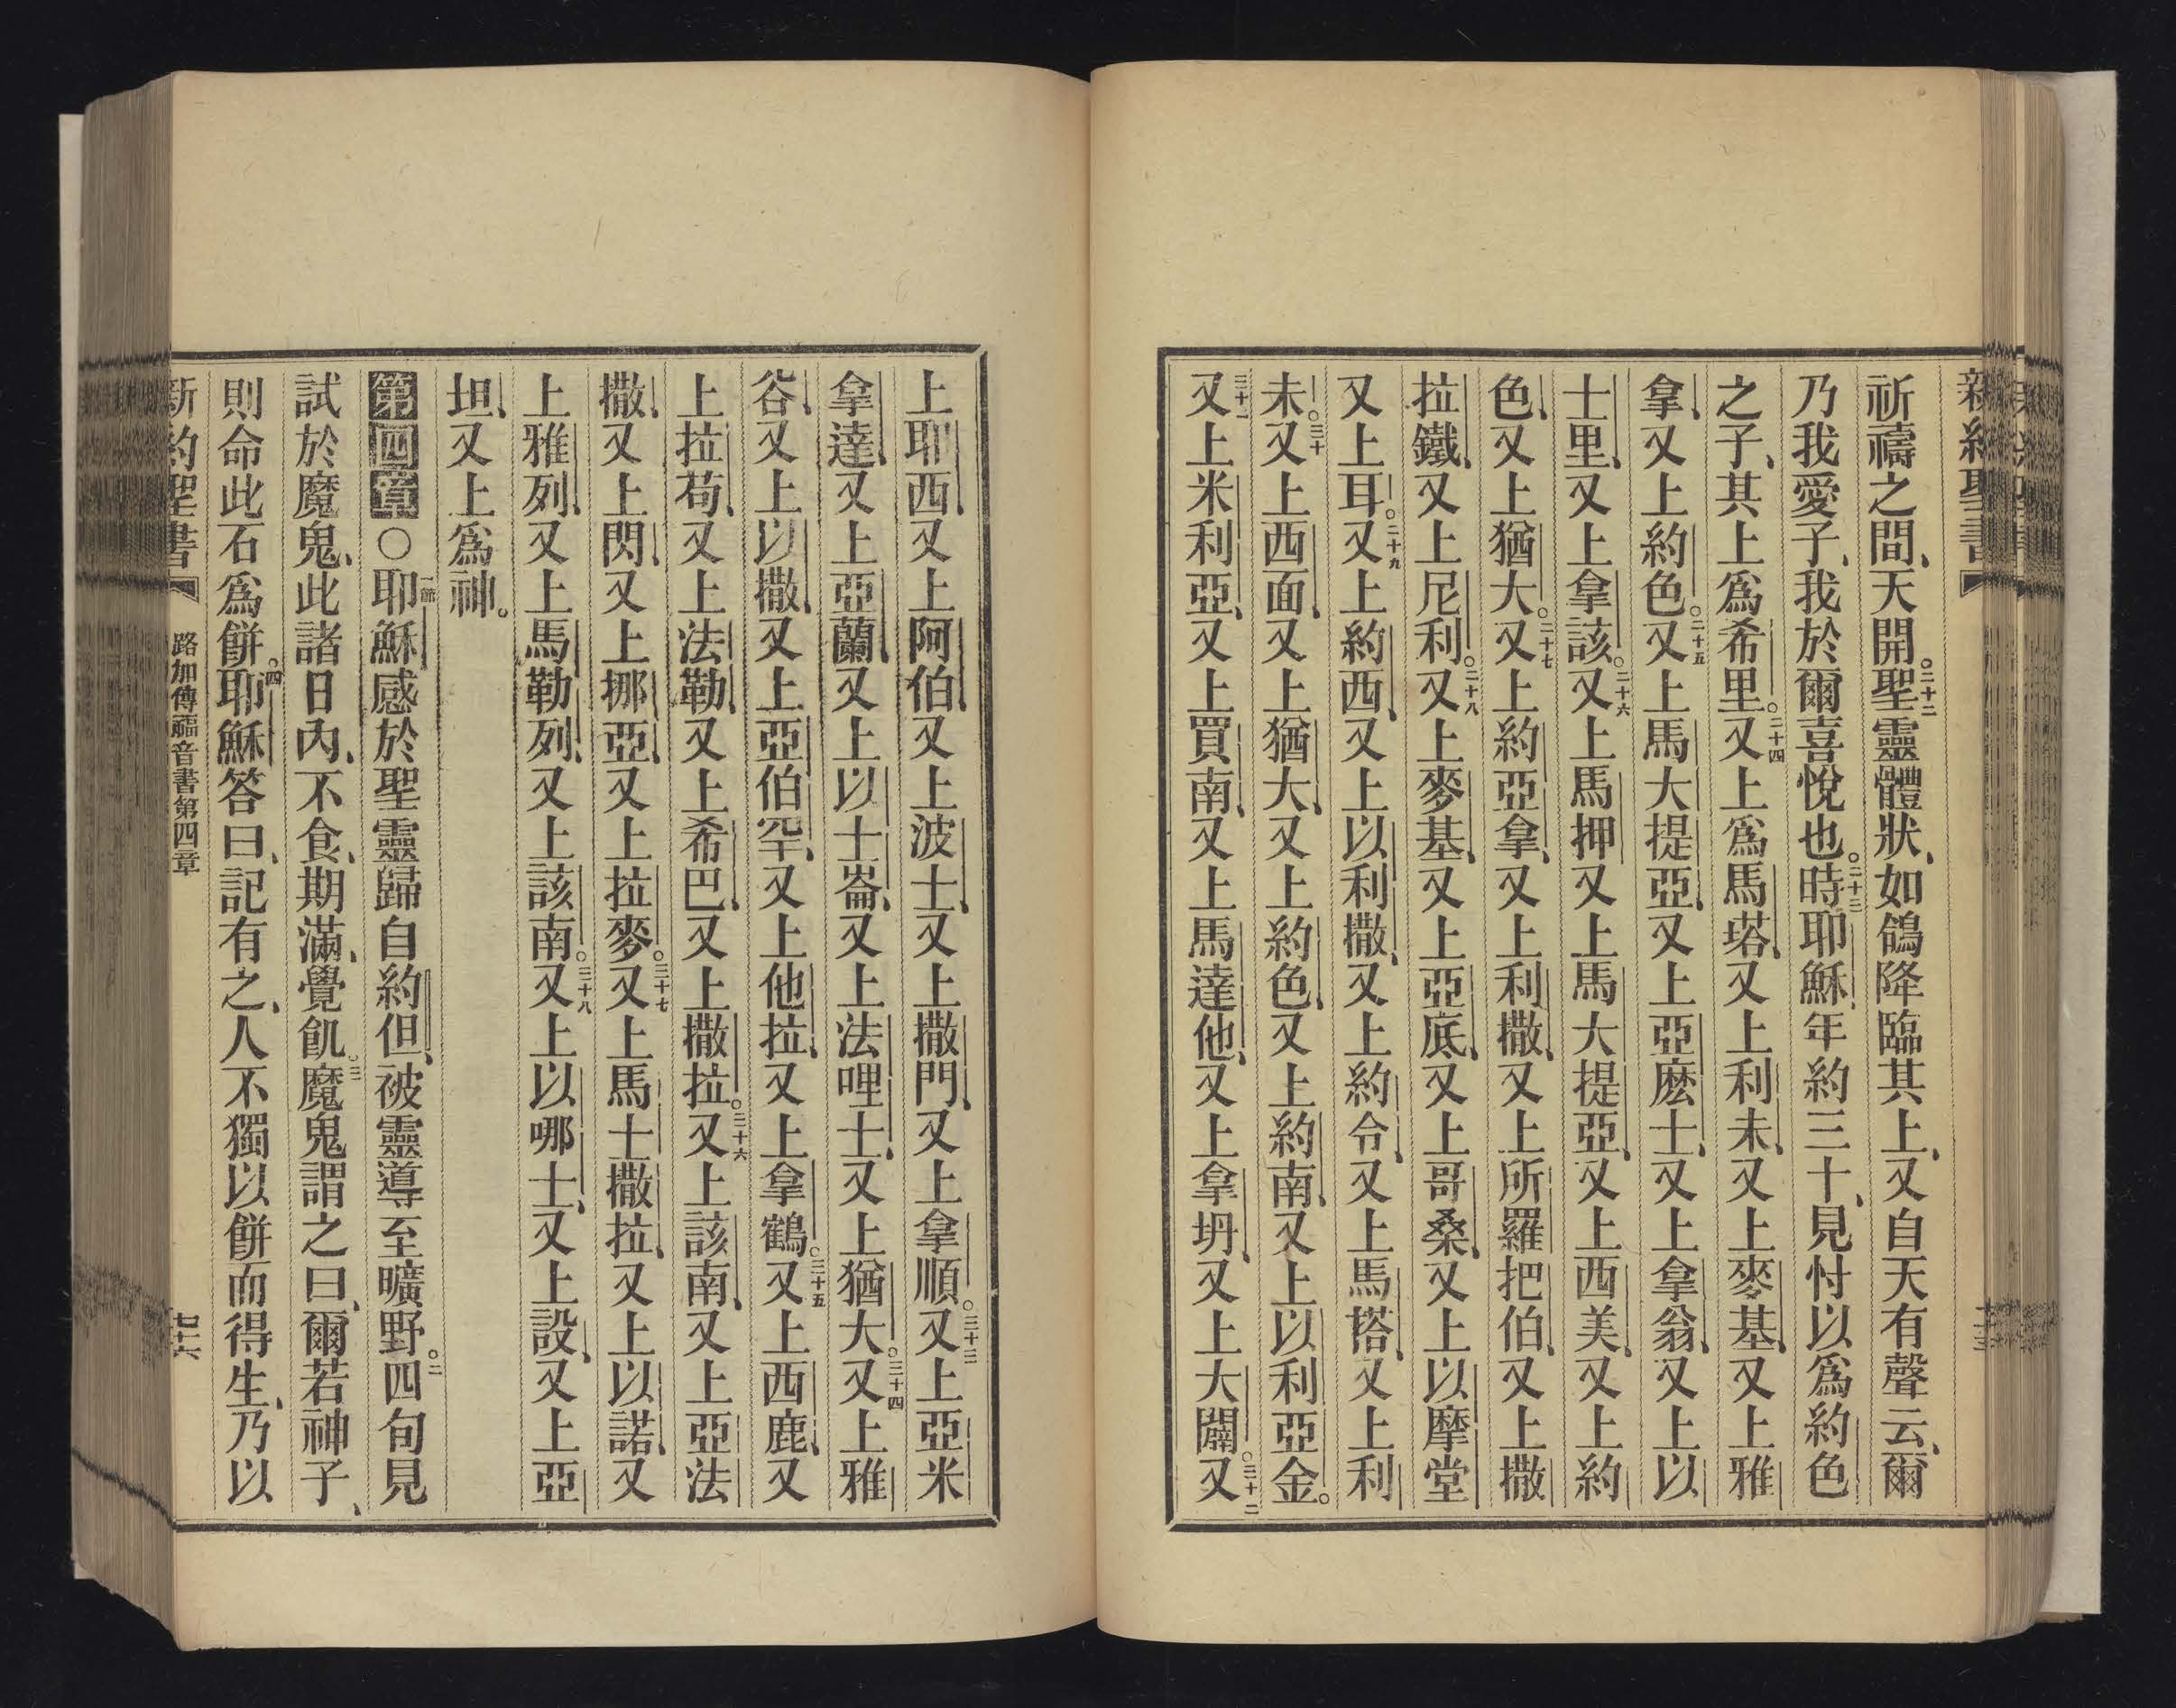 新約聖書
祈禱之間、天開。二十二聖靈體狀、如鴿降臨其上、又自天有聲云、爾
乃我愛子、我於爾喜悅也。二十三時耶穌、年約三十、見忖以爲約色
之子、其上爲希里。二十四又上爲馬塔、又上利未、又上麥基、又上雅
拿、又上約色。二十五又上馬大提亞、又上亞麽士、又上拿翁、又上以
士里、又上拿該。二十六又上馬押又上馬大提亞、又上西美、又上約
色、又上猶大。二十七又上約亞拿、又上利撒、又上所羅把伯、又上撒
拉鐵、又上尼利。二十八又上麥基、又上亞底、又上哥桑、又上以摩堂
又上耳。二十九又上約西、又上以利撒、又上約令、又上馬塔、又上利
未。三十又上西面、又上猶大、又上約色、又上約南、又上以利亞金。
三十一又上米利亞、又上買南、又上馬達他、又上拿坍、又上大闢。三十二又
上耶西、又上阿伯、又上波士、又上撒門、又上拿順。三十三又上亞米
拿達、又上亞蘭、又上以士崙、又上法哩士、又上猶大。三十四又上雅
谷、又上以撒、又上亞伯罕、又上他拉、又上拿鶴。三十五又上西鹿、又
上拉苟、又上法勒、又上希巴、又上撒拉。三十六又上該南、又上亞法
撒、又上閃、又上挪亞、又上拉麥。三十七又上馬士撒拉、又上以諾、又
上雅列、又上馬勒列、又上該南。三十八又上以哪士、又上設、又上亞
坦、又上爲神。
第四章○一節耶穌感於聖靈歸自約但、被靈導至曠野。二四旬見
試於魔鬼、此諸日內、不食、期滿、覺飢。三魔鬼謂之曰、爾若神子、
則命此石爲餅。四耶穌答曰、記有之、人不獨以餅而得生、乃以
新約聖書 路加傳福音書第四章 七十六